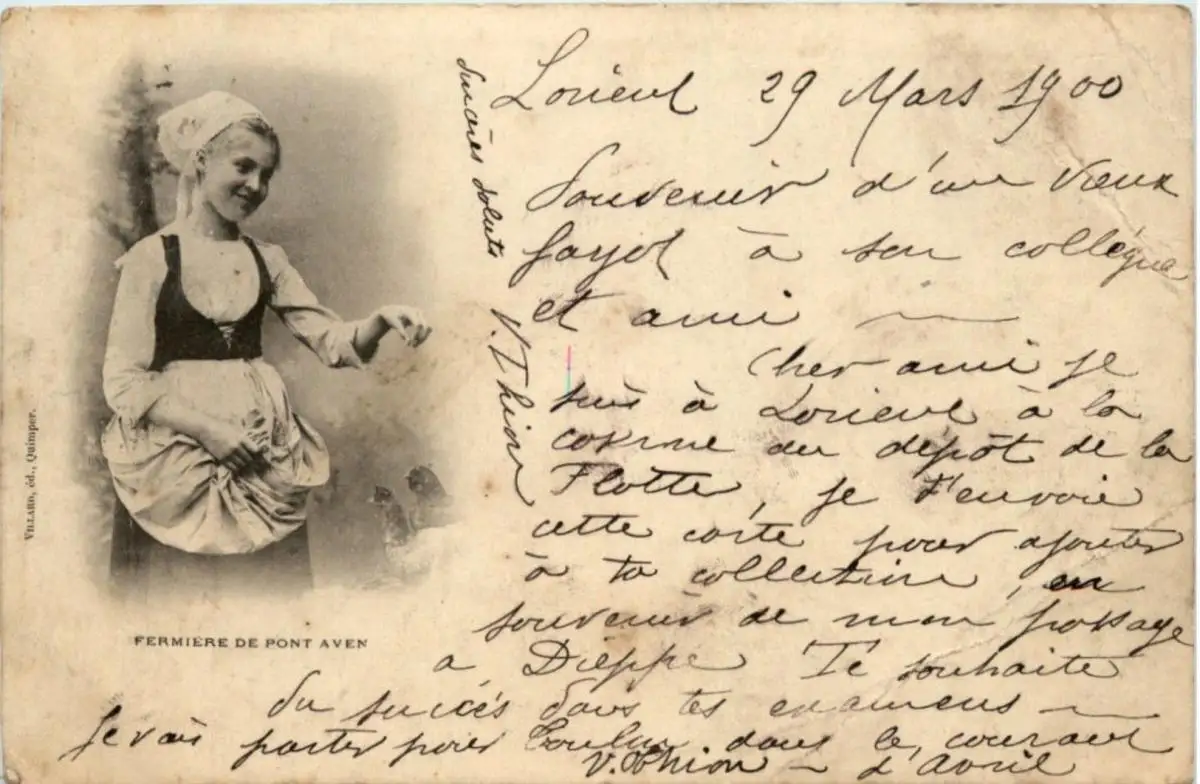 Lorient 29 Mars 1900
Souvenir d'un vieux
fayot à son collègue
et ami
Cher ami je
suis à Lorient à la
caserne du dépôt de la
Flotte, je t'envoie
cette carte pour ajouter
à ta collection, en
souvenir de mon passage
a Dieppe Te souhaite
du succès dans tes examens
je vais partir pour Toulon dans le courant
V. Thion d'Avril
Sincères saluts
V. Thion
FERMIÈRE DE PONT AVEN
VILLARD, éd., Quimper.